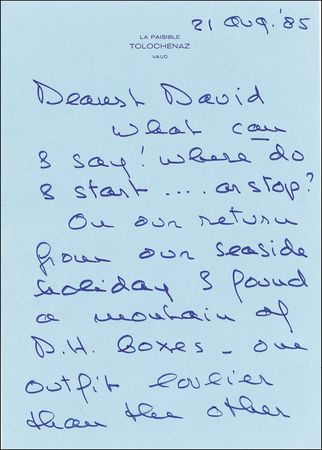 21 Aug. '85
LA PAISIBLE
TOLOCHENAZ
VAUD
Dearest David
What can
I say! Where do
I start .... or stop?
On our return
from our seaside
holiday I found
a mountain of
D.H. boxes - one
outfit lovlier
than the other